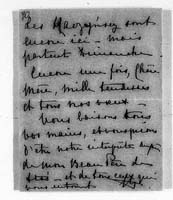 Les
sont
encore ici – mais
partent Dimanche.
Encore une fois, Chère
Mère, mille tendresses
et tous nos vœux –
Nous baisons tous
vos mains, et vous prions
d'être notre interprète auprès
de mon Beau Père
et de tous ceux qui
vous entourent